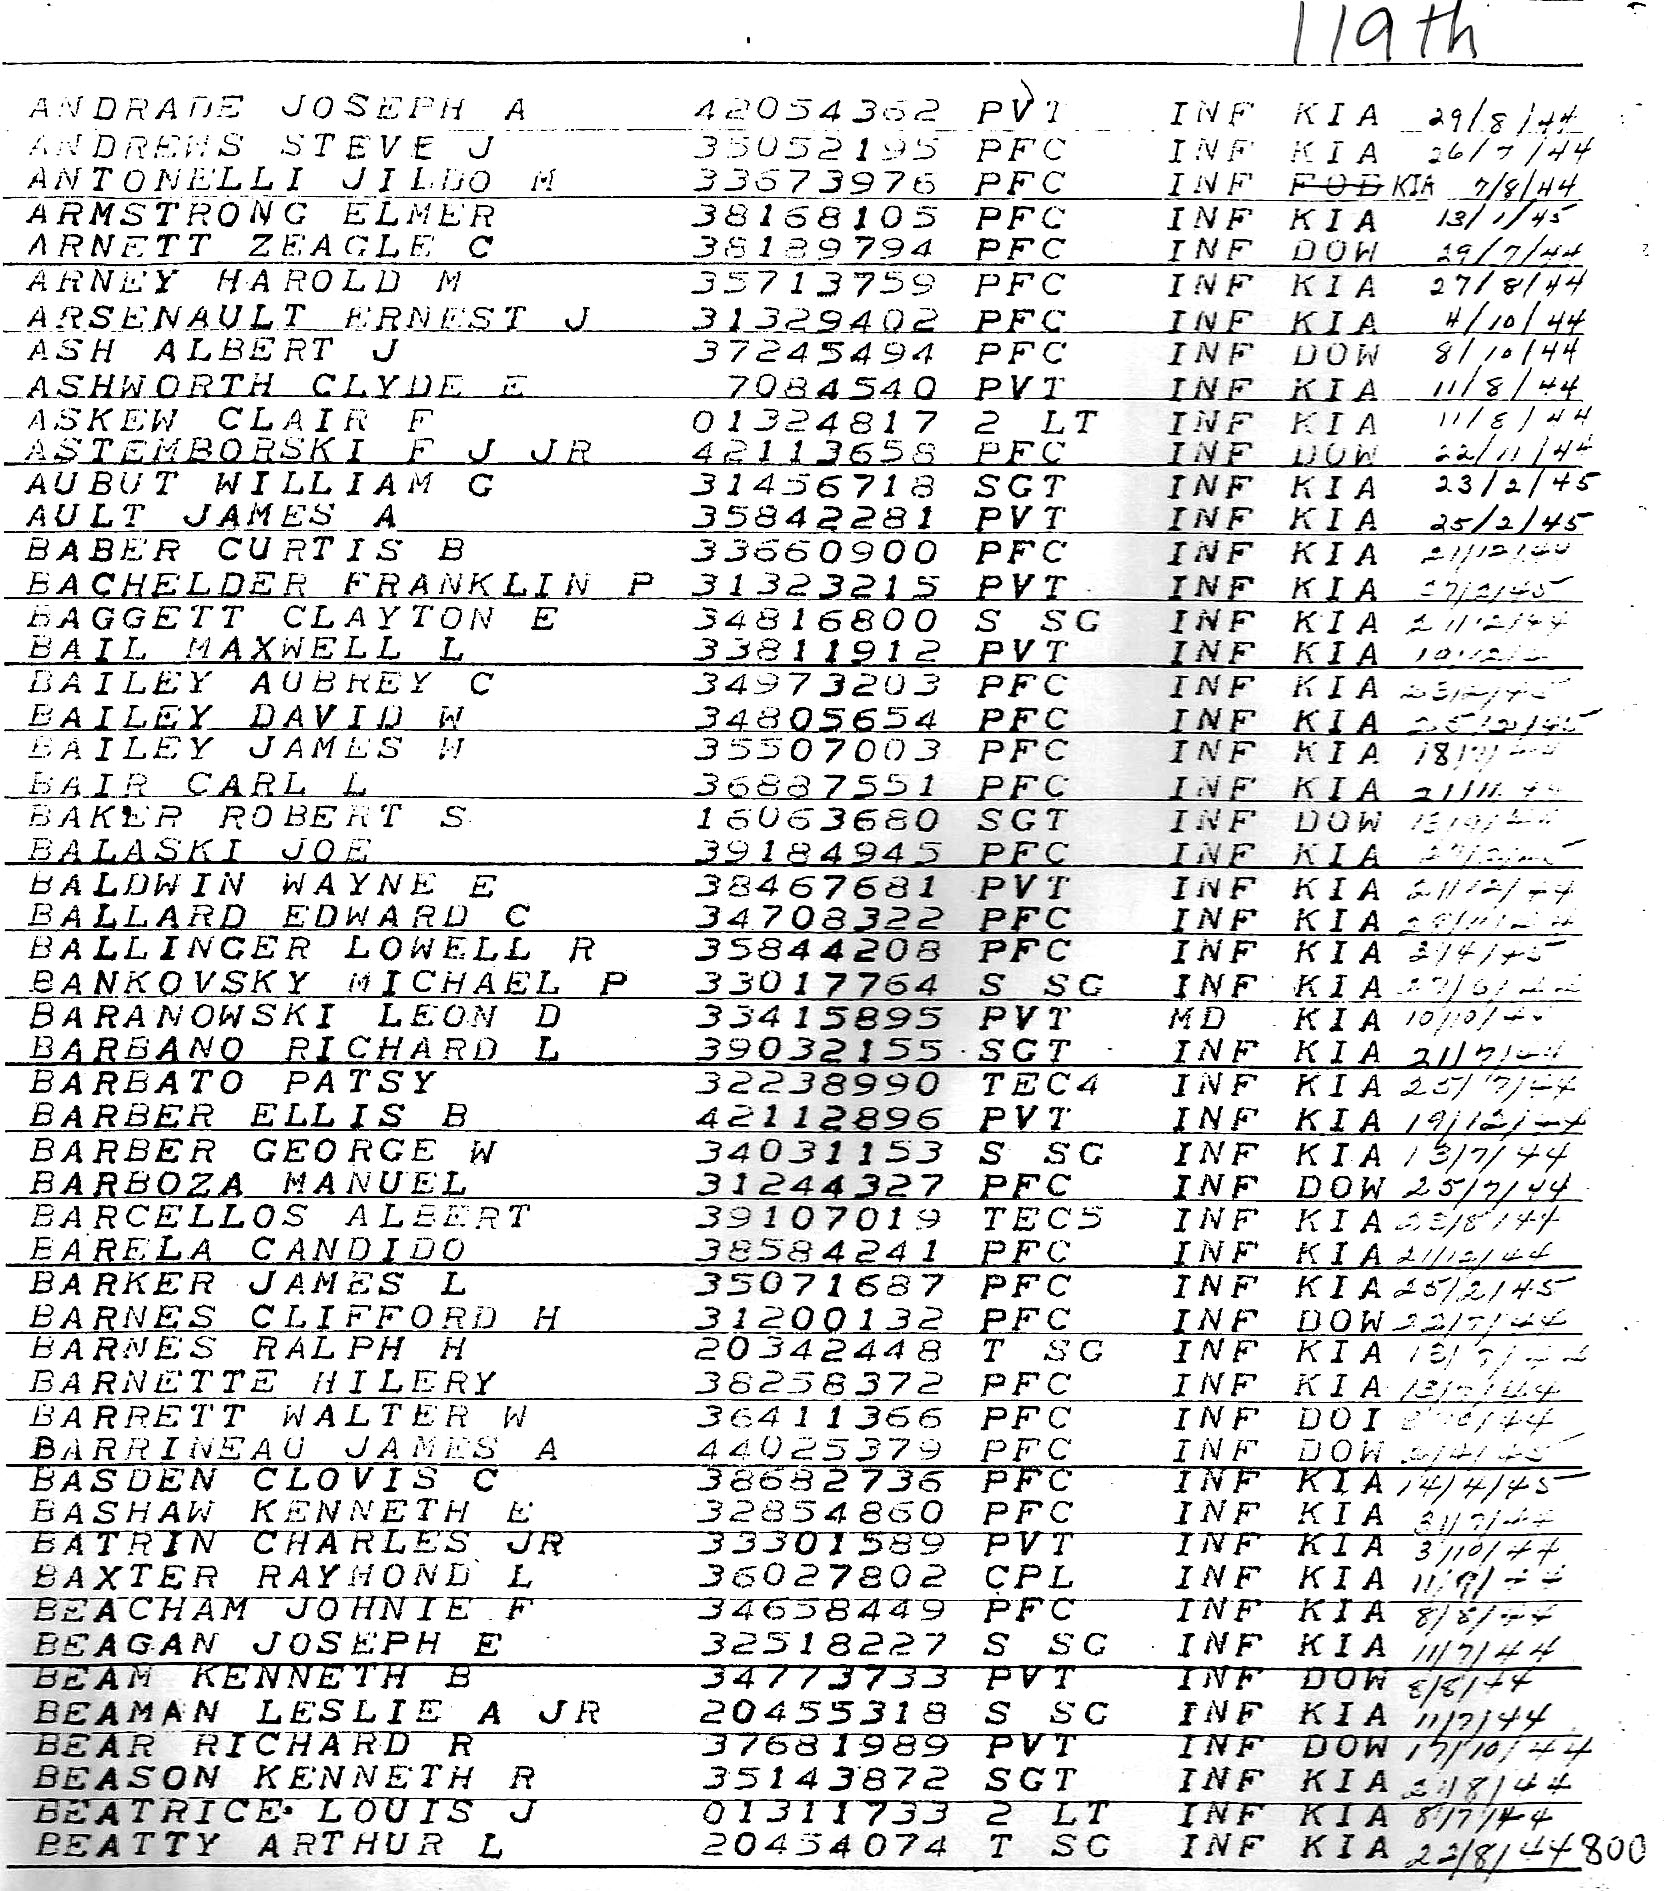 119th
ANDRADE JOSEPH A 42054362 PVT INF KIA 29/8/44
ANDREWS STEVE J 35052195 PFC INF KIA 26/7/44
ANTONELLI JILDO M 33673976 PFC INF FOD KIA 7/8/44
ARMSTRONG ELMER 38168105 PFC INF KIA 13/1/45
ARNETT ZEAGLE C 38189794 PFC INF DOW 29/7/44
ARNEY HAROLD M 35713759 PFC INF KIA 27/8/44
ARSENAULT ERNEST J 31329402 PFC INF KIA 4/10/44
ASH ALBERT J 37245494 PFC INF DOW 8/10/44
ASHWORTH CLYDE E 7084540 PVT INF KIA 11/8/44
ASKEW CLAIR F 01324817 2 LT INF KIA 11/8/44
ASTEMBORSKI F J JR 42113658 PFC INF DOW 22/11/44
AUBUT WILLIAM G 31456718 SGT INF KIA 23/2/45
AULT JAMES A 35842281 PVT INF KIA 25/2/45
BABER CURTIS B 33660900 PFC INF KIA 21/12/44
BACHELDER FRANKLIN P 31323215 PVT INF KIA 27/2/45
BAGGETT CLAYTON E 34816800 S SG INF KIA 21/12/44
BAIL MAXWELL L 33811912 PVT INF KIA
BAILEY AUBREY C 34973203 PFC INF KIA
BAILEY DAVID W 34805654 PFC INF KIA 25/2/45
BAILEY JAMES W 35507003 PFC INF KIA 18/7/44
BAIR CARL L 36887551 PFC INF KIA 21/11/44
BAKER ROBERT S 16063680 SGT INF DOW
BALASKI JOE 39184945 PFC INF KIA
BALDWIN WAYNE E 38467681 PVT INF KIA 21/12/44
BALLARD EDWARD C 34708322 PFC INF KIA
BALLINGER LOWELL R 35844208 PFC INF KIA 2/4/45
BANKOVSKY MICHAEL P 33017764 S SG INF KIA
BARANOWSKI LEON D 33415895 PVT MD KIA 10/10/44
BARBANO RICHARD L 39032155 SGT INF KIA 21/7/44
BARBATO PATSY 32238990 TEC4 INF KIA 25/7/44
BARBER ELLIS B 42112896 PVT INF KIA 19/12/44
BARBER GEORGE W 34031153 S SG INF KIA 13/7/44
BARBOZA MANUEL 31244327 PFC INF DOW 25/7/44
BARCELLOS ALBERT 39107019 TEC5 INF KIA
BARELA CANDIDO 38584241 PFC INF KIA 21/12/44
BARKER JAMES L 35071687 PFC INF KIA 25/2/45
BARNES CLIFFORD H 31200132 PFC INF DOW 22/7/44
BARNES RALPH H 20342448 T SG INF KIA
BARNETTE HILERY 38258372 PFC INF KIA 13/7/44
BARRETT WALTER W 36411366 PFC INF DOI
BARRINEAU JAMES A 44025379 PFC INF DOW
BASDEN CLOVIS C 38682736 PFC INF KIA 14/4/45
BASHAW KENNETH E 32854860 PFC INF KIA 31/7/44
BATRIN CHARLES JR 33301589 PVT INF KIA 3/10/44
BAXTER RAYMOND L 36027802 CPL INF KIA
BEACHAM JOHNIE F 34658449 PFC INF KIA 8/8/44
BEAGAN JOSEPH E 32518227 S SG INF KIA 11/7/44
BEAM KENNETH B 34773733 PVT INF DOW 8/8/44
BEAMAN LESLIE A JR 20455318 S SG INF KIA 11/7/44
BEAR RICHARD R 37681989 PVT INF DOW 17/10/44
BEASON KENNETH R 35143872 SGT INF KIA
BEATRICE LOUIS J 01311733 2 LT INF KIA 8/7/44
BEATTY ARTHUR L 20454074 T SG INF KIA 22/8/44 800